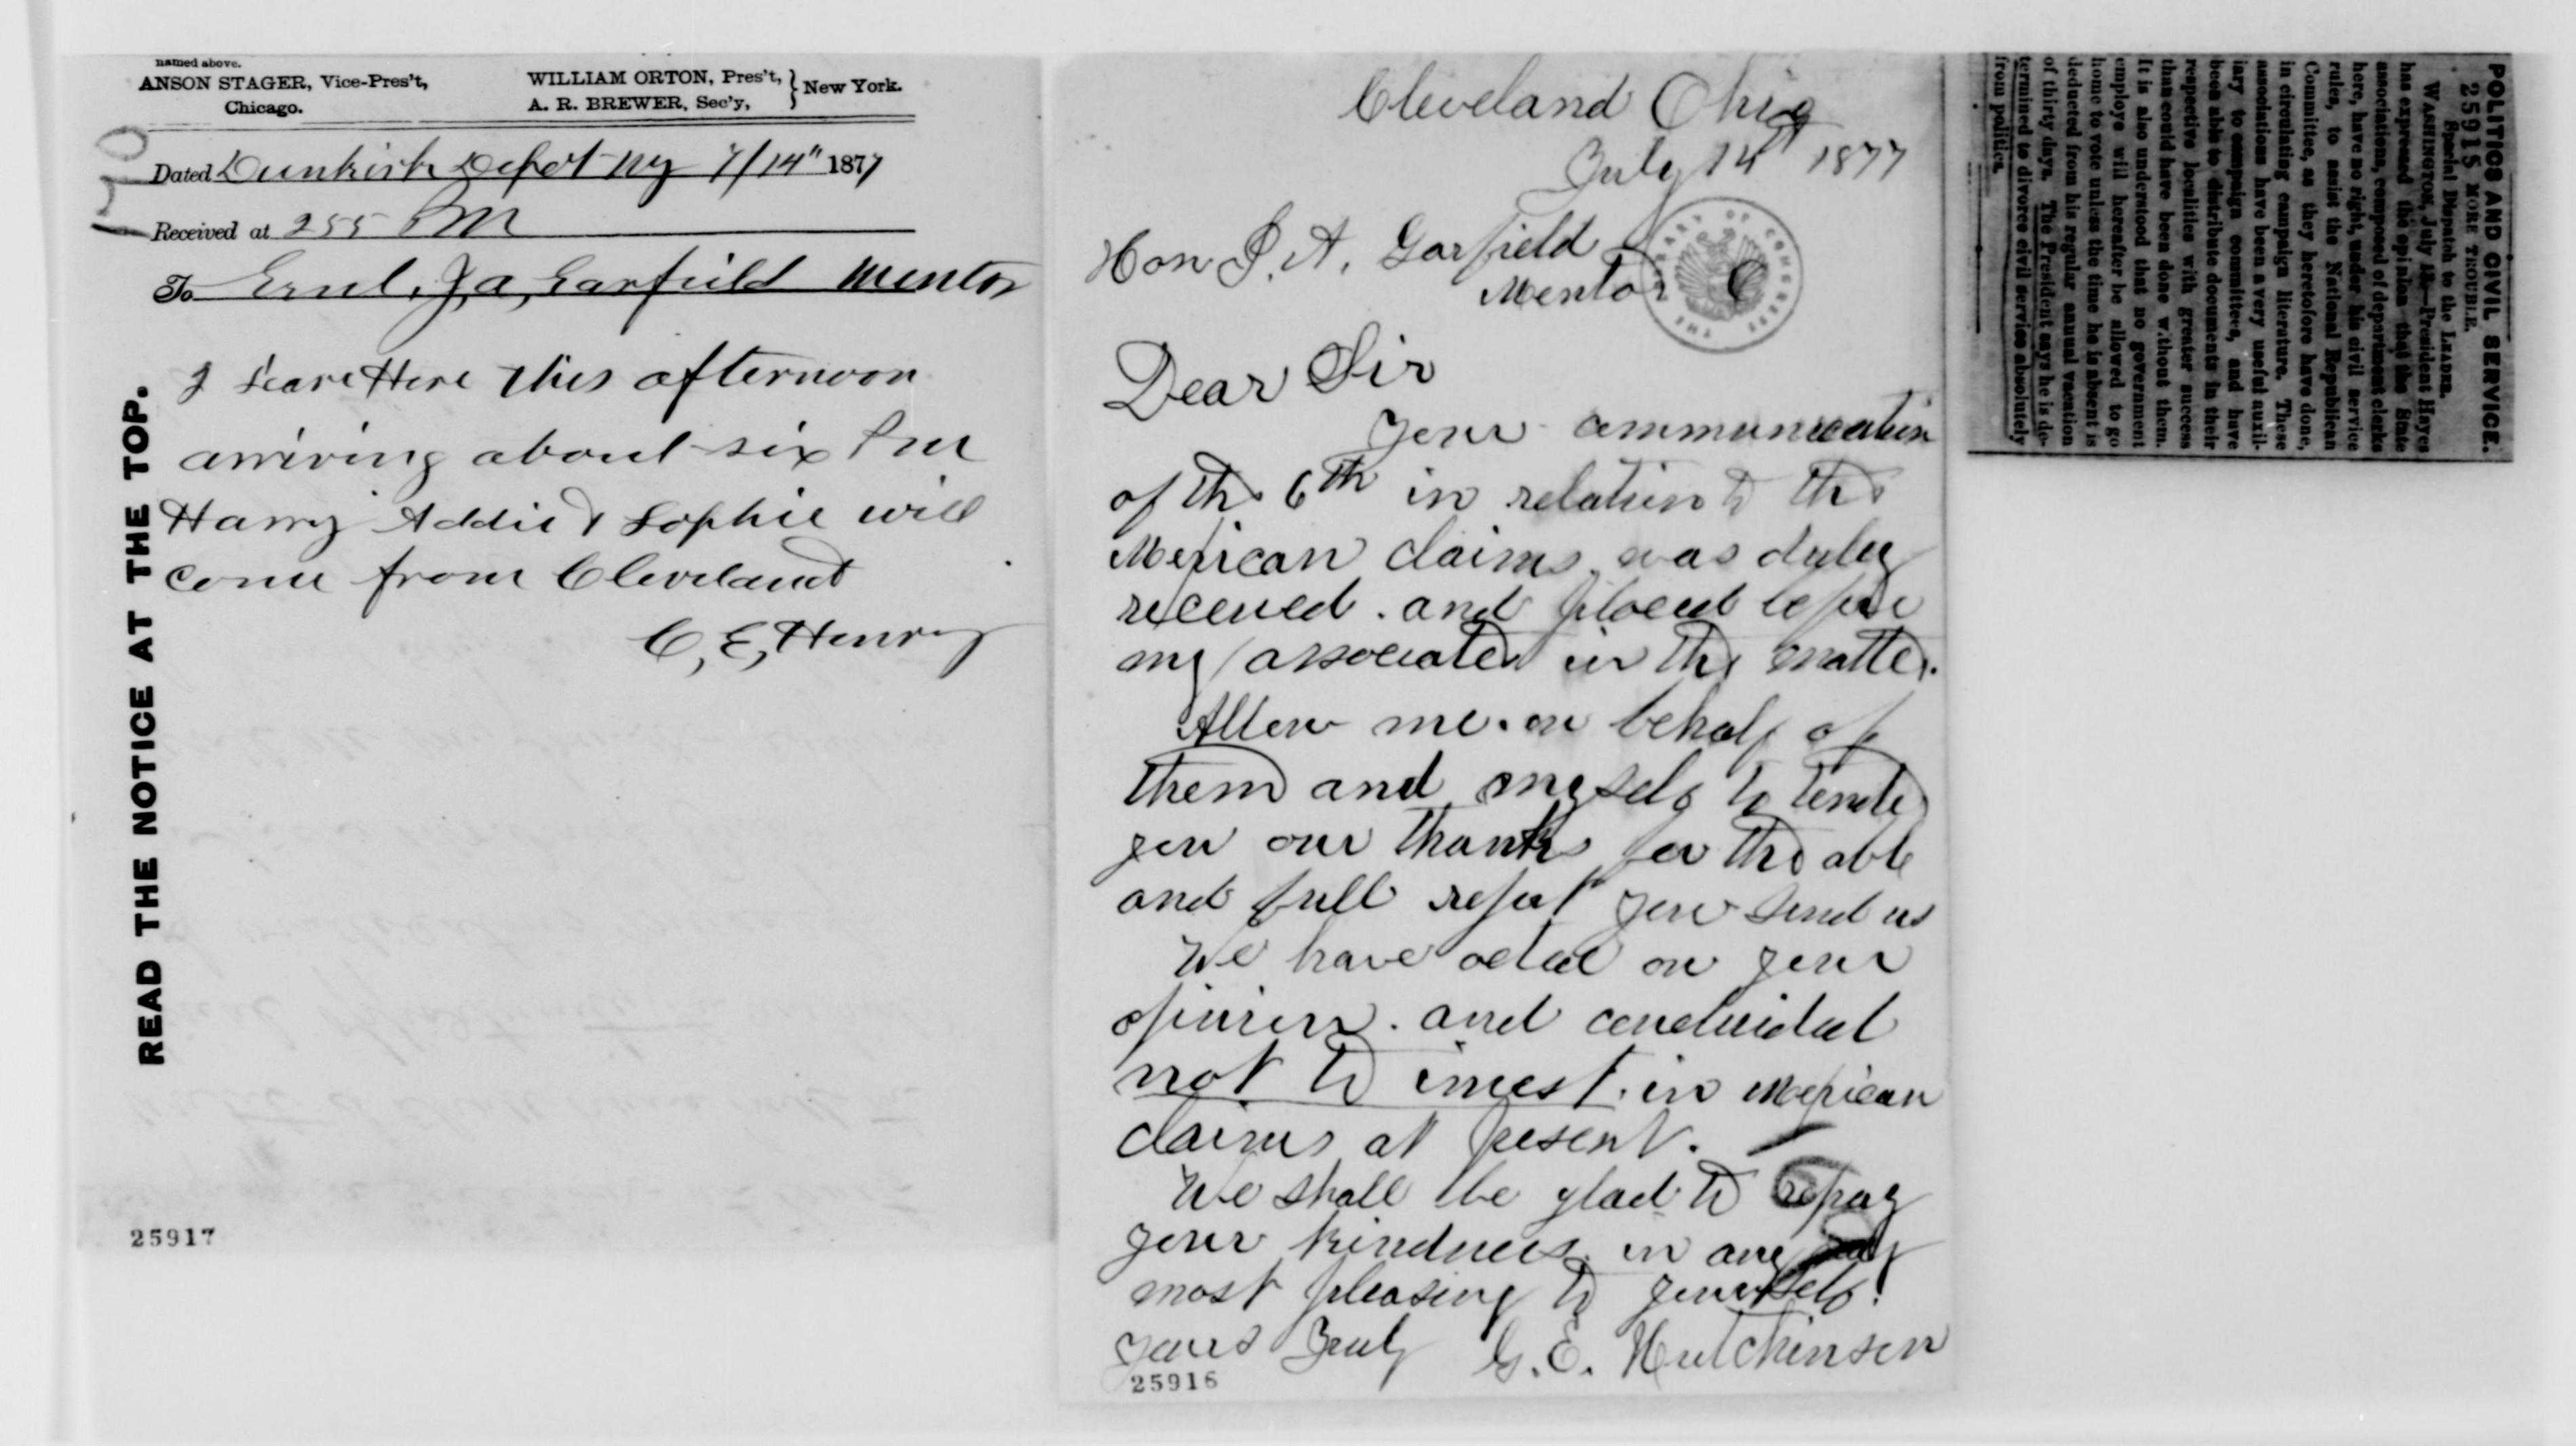 named above.
ANSON STAGER, Vice-Pres't,
Chicago.
WILLIAM ORTON, Pres't,
A. R. BREWER, Sec'y,
New York.
Dated Dunkirk Depot NY 7/14" 1877
Received at 255 PM
To Genl. J, A, Garfield Mentor
READ THE NOTICE AT THE TOP.
I Leave Here this afternoon
arriving about six Pm
Harry Addie & Sophie will
come from Cleveland
C, E, Henry
25917
Cleveland Ohio
July 14th 1877
Hon J. A. Garfield
Mentor
THE LIBRARY OF CONGRESS
Dear Sir
Your communication
of the 6th in relation to the
Mexican claims, was duly
received. and placed before
my associates in the matter.
Allow me. on behalf of
them and myself to tender
you our thanks for the able
and full report you send us
We have acted on your
opinion. and concluded
not to invest. in Mexican
claims at present.
We shall be glad to repay
your kindness. in any way
most pleasing to yourself.
Yours Truly G. E. Hutchinson
25916
POLITICS AND CIVIL SERVICE.
25915 MORE TROUBLE.
Special Dispatch to the LEADER.
WASHINGTON, July —President Hayes
has expressed the opinion that the State
associations, composed of department clerks
here, have no right, under his civil service
rules, to assist the National Republican
Committee, as they heretofore have done,
in circulating campaign literature. These
associations have been a very useful auxil-
iary to campaign committees, and have
been able to distribute documents in their
respective localities with greater success
than could have been done without them.
It is also understood that no government
employe will hereafter be allowed to go
home to vote unless the time he is absent is
deducted from his regular annual vacation
of thirty days. The President says he is de-
termined to divorce civil service absolutely
from politics.